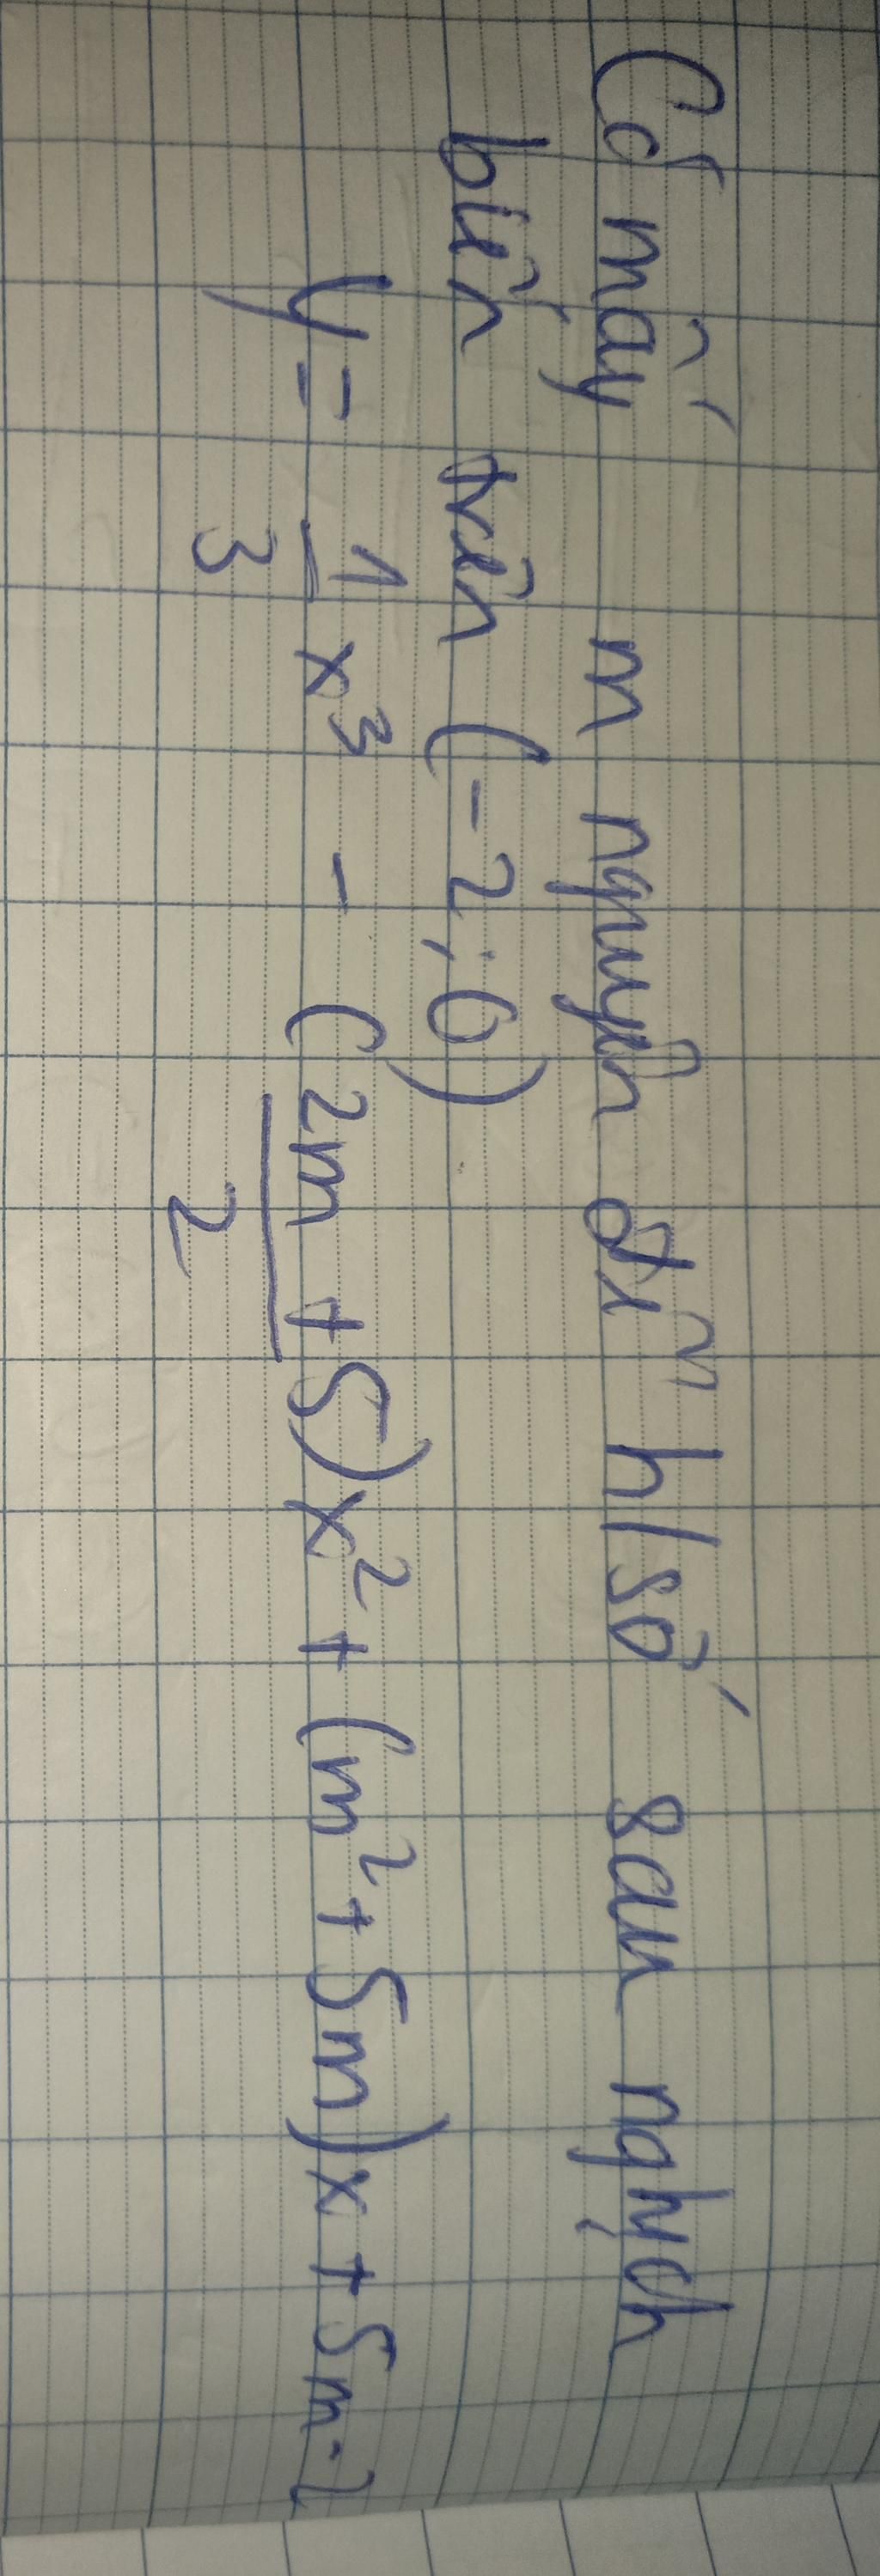 Có mấy m nguyên để h/số sau nghịch
biến trên (-2; 0)
y = 1/3 x³ - (2m + 5)/2 x² + (m² + 5m)x + 5m - 2